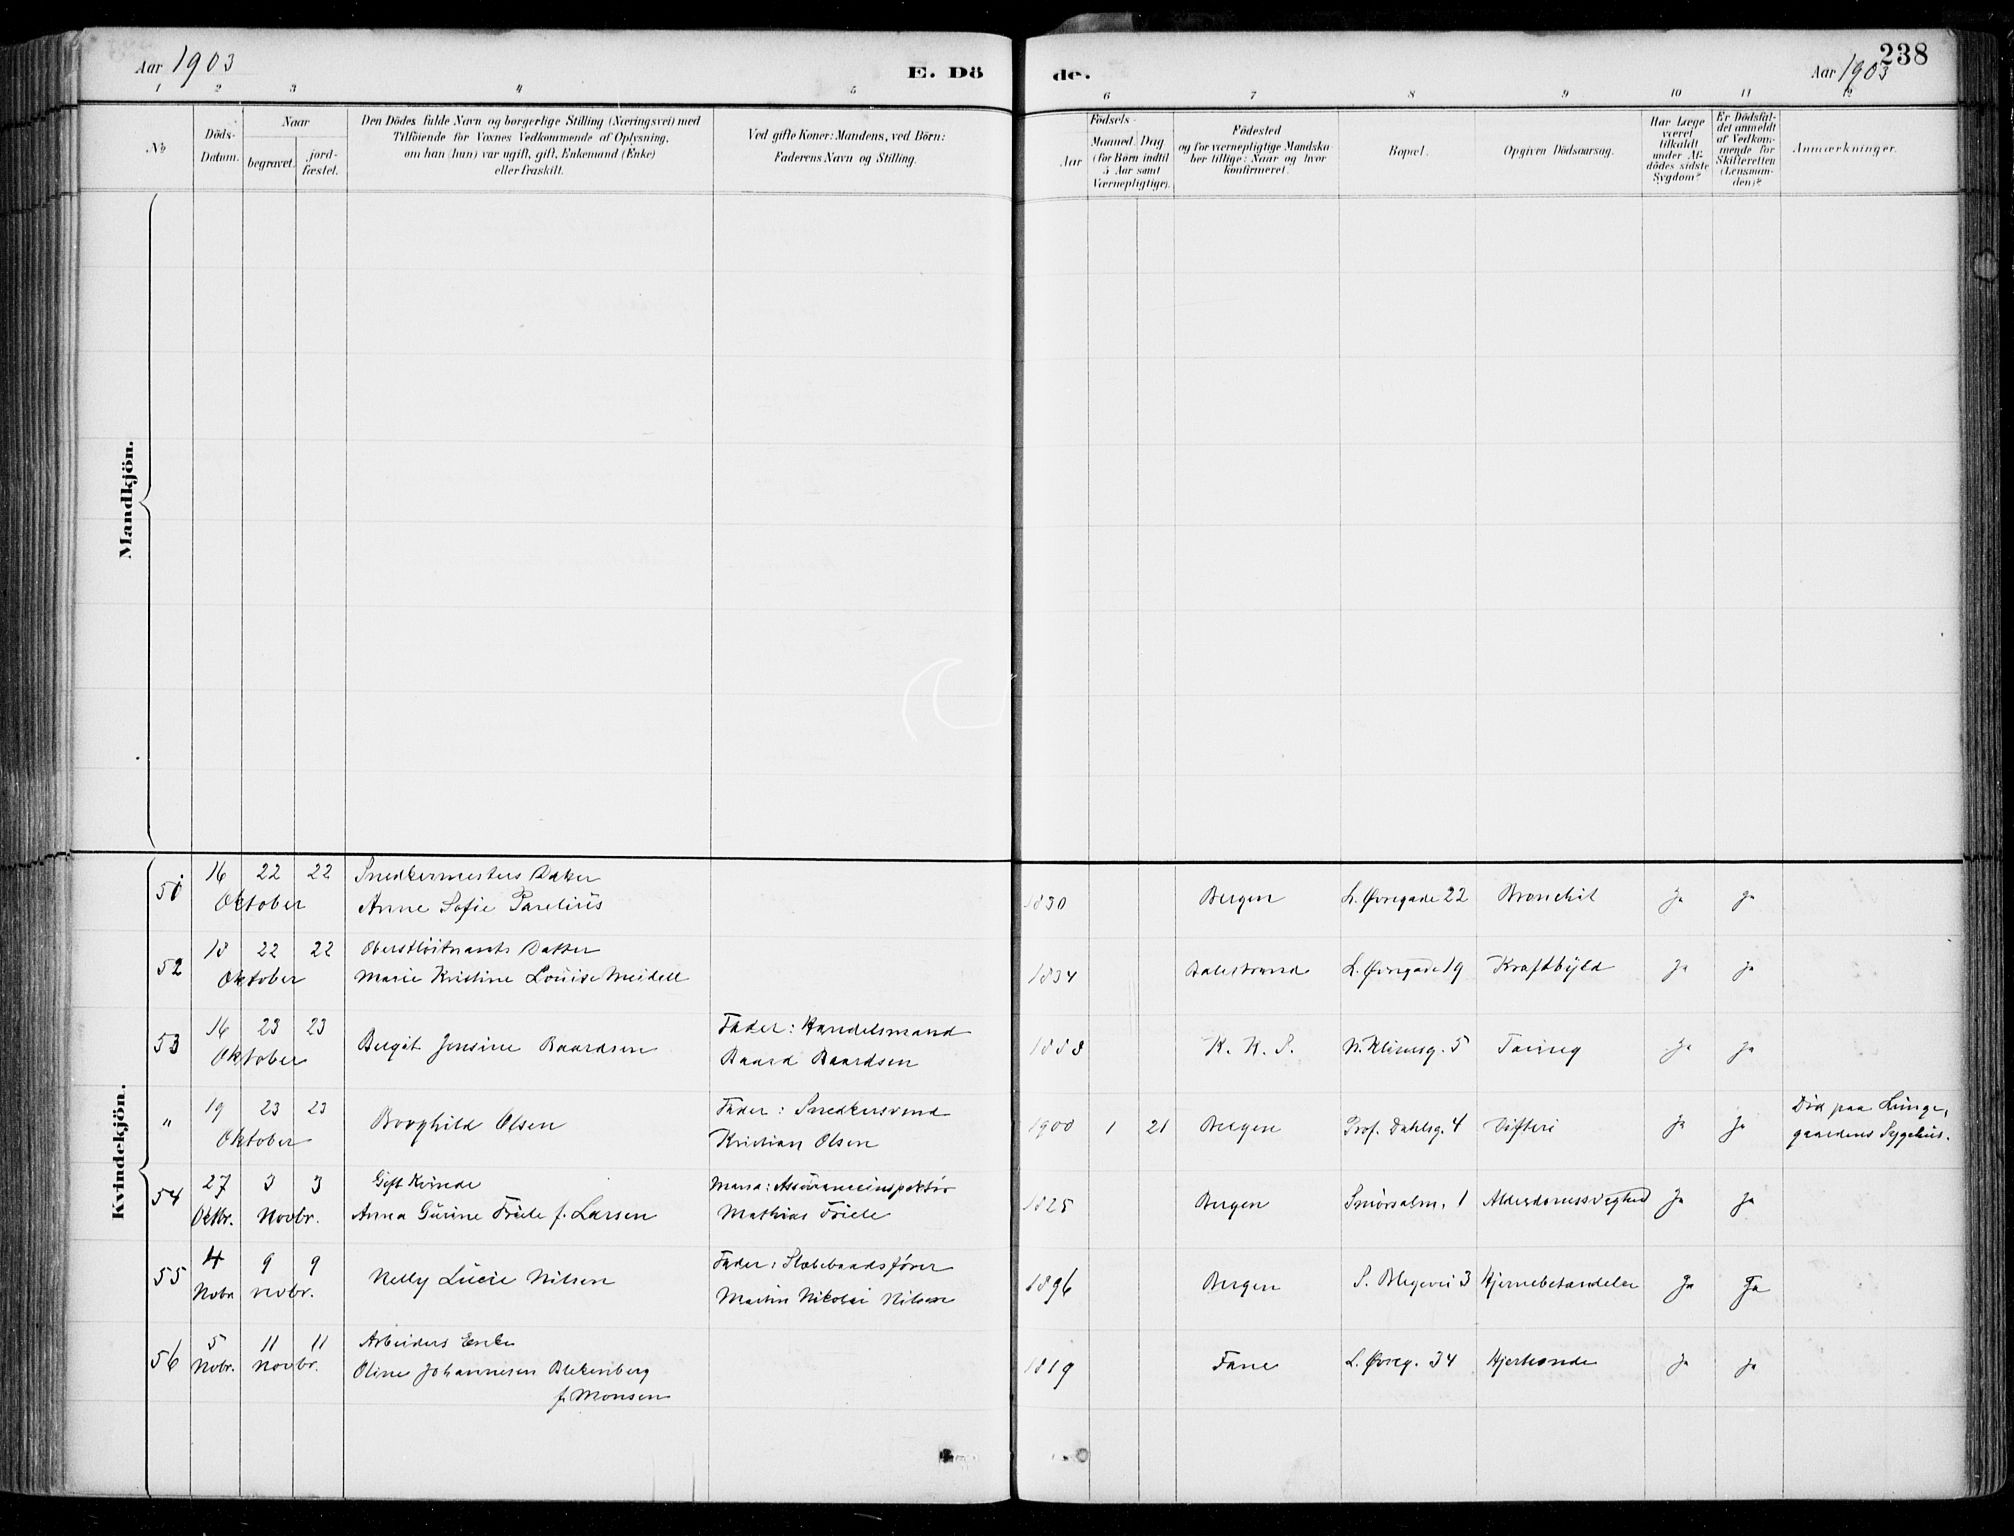 Aar 1903
E. Dö
de.
Aar 1903
238
1 2 3 4 5 6 7 8 9 10 11 12
No
Döds-
Datum.
Naar
begravet.
jord-
fæstet.
Den Dödes fulde Navn og borgerlige Stilling (Næringsvei) med
Tilföiende for Voxnes Vedkommende af Oplysning,
om han (hun) var ugift, gift, Enkemand (Enke)
eller fraskilt.
Ved gifte Koner: Mandens, ved Börn:
Faderens Navn og Stilling.
Födsels-
Aar
Maaned
Dag
(for Börn indtil
5 Aar samt
Værnepligtige).
Födested
og for værnepligtige Mandska-
ber tillige: Naar og hvor
konfirmeret.
Bopæl.
Opgiven Dödsaarsag.
Har Læge
været
tilkaldt
under Af-
dödes sidste
Sygdom?
Er Dödsfal-
det anmeldt
af Vedkom-
mende for
Skifteretten
(Lensman-
den)?
Anmærkninger.
Mandkjön.
Kvindekjön.
51 16 22 22 Snedkermesters Datter
Oktober Anne Sofie Parelius 1830 Bergen L. Øvregade 22 Bronchit Ja Ja
52 18 22 22 Oberstløitnants Datter
Oktober Marie Kristine Louise Meidell 1834 Balestrand L. Øvregade 19 Kraftbyld Ja Ja
53 16 23 23 Fader: Handelsmand
Oktober Bergit Jensine Baardsen Baard Baardsen 1888 K. K. S. N. Klsmg. 5 Tæring Ja Ja
" 19 23 23 Fader: Snedkersvend
Oktober Borghild Olsen Kristian Olsen 1900 1 21 Bergen Prof. Dahlsg. 4 Difteri Ja Ja Død paa Lunge-
gaardens Sygehus.
54 27 3 3 Gift Kvinde Mand: Assuranceinspektør
Oktbr. Novbr. Anna Gurine Friele f. Larsen Mathias Friele 1825 Bergen Smørsalm. 1 Alderdomssvaghed Ja Ja
55 4 9 9 Fader: Slæbebaadsfører
Novbr novbr. Nelly Lucie Nilsen Martin Nikolai Nilsen 1896 Bergen S. Blegevei 3 Hjernebetændelse Ja Ja
56 5 11 11 Arbeiders Enke
Novbr. Novbr. Oline Johannesen Blekenberg
f. Monsen 1819 Fane L. Øvreg. 34 Hjerteonde Ja Ja